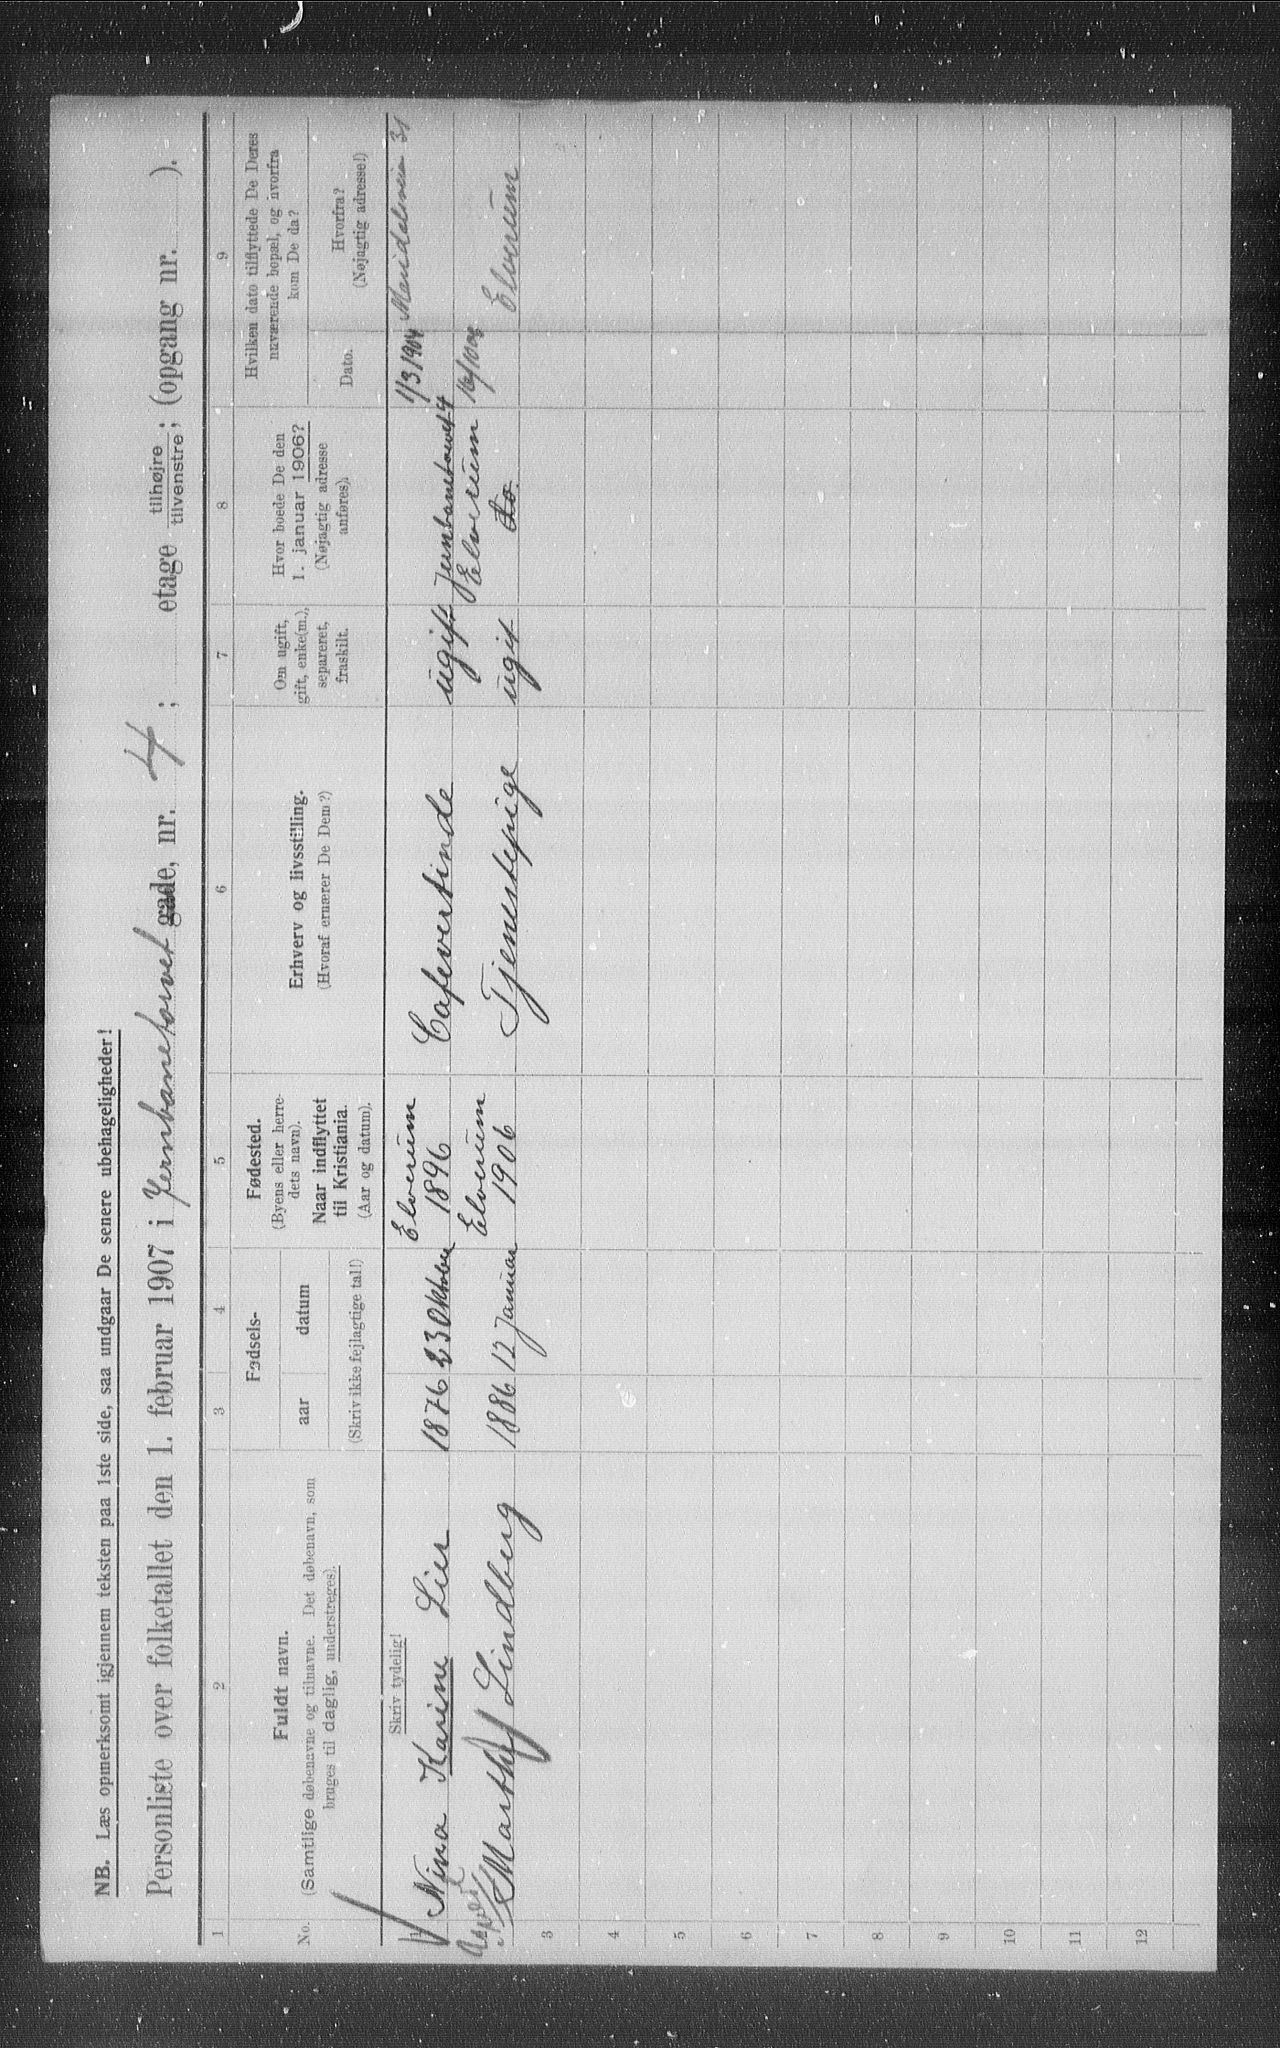 NB. Læs opmerksomt igjennem teksten paa 1ste side, saa undgaar De senere ubehageligheder!
Personliste over folketallet den 1. februar 1907 i Jernbanetorvet gade, nr. 4; etage tilhøjre tilvenstre; (opgang nr. ).
1 2 3 4 5 6 7 8 9
No.
Fuldt navn.
(Samtlige døbenavne og tilnavne. Det døbenavn, som
bruges til daglig, understreges).
Fødsels-
aar datum
(Skriv ikke fejlagtige tal!)
Fødested.
(Byens eller herre-
dets navn).
Naar indflyttet
til Kristiania.
(Aar og datum).
Erhverv og livsstilling.
(Hvoraf ernærer De Dem?)
Om ugift,
gift, enke(m.),
separeret,
fraskilt.
Hvor boede De den
1. januar 1906?
(Nøjagtig adresse
anføres).
Hvilken dato tilflyttede De Deres
nuværende bopæl, og hvorfra
kom De da?
Dato.
Hvorfra?
(Nøjagtig adresse!)
Skriv tydelig!
1 Nina Karine Lier 1876 23 Oktober Elverum 1896 Cafevertinde ugift Jernbanetorvet 4 1/3 1904 Maridalsveien 31
2 Marthe Lindberg 1886 12 Januar Elverum 1906 Tjenestepige ugift Elverum do. 16/10 06 Elverum
3
4
5
6
7
8
9
10
11
12